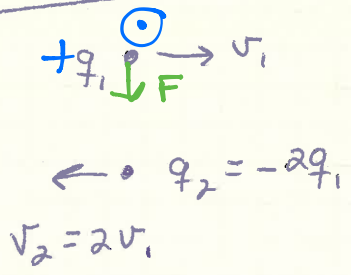 +q₁ v₁
F
q₂ = -2q₁
v₂ = 2v₁